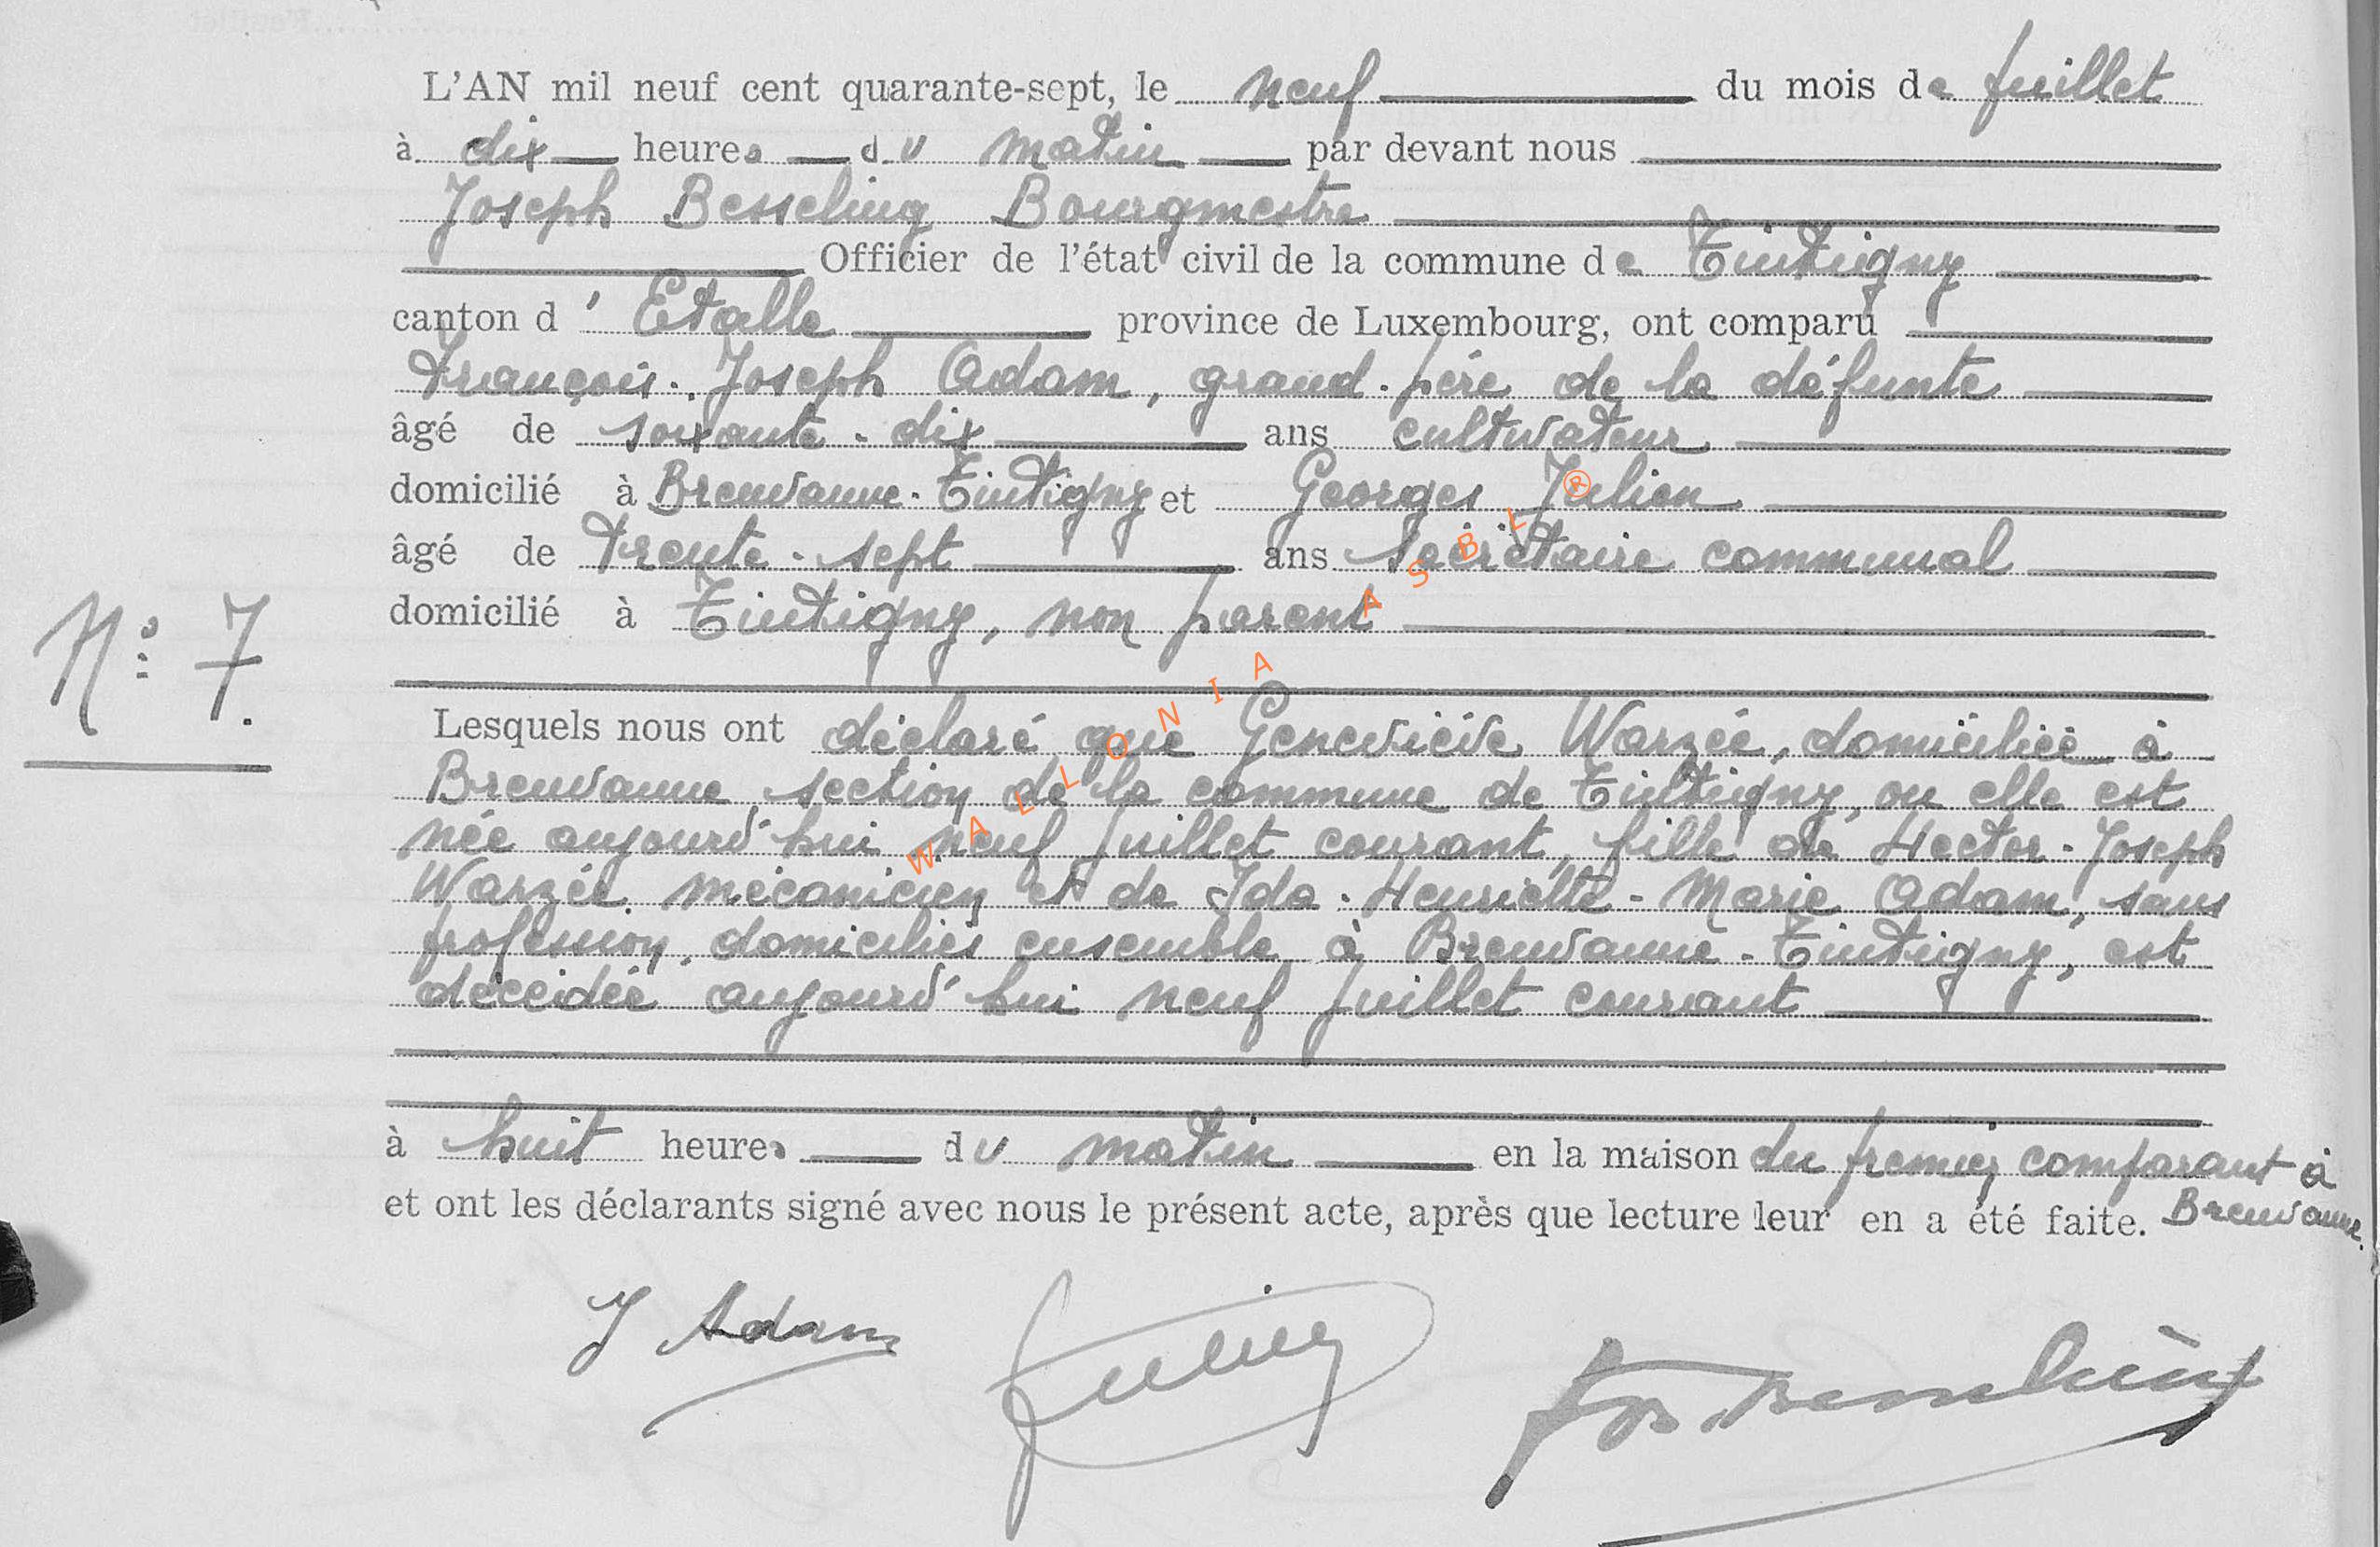 L'AN mil neuf cent quarante-sept, le neuf du mois de juillet
à dix heures du matin par devant nous
Joseph Besseling Bourgmestre
Officier de l'état civil de la commune de Tintigny
canton d'Etalle province de Luxembourg, ont comparu
François-Joseph Adam, grand-père de la défunte
âgé de soixante-dix ans cultivateur
domicilié à Breuvanne-Tintigny et Georges Julien
âgé de trente-sept ans secrétaire communal
domicilié à Tintigny, non parent
N° 7
Lesquels nous ont déclaré que Geneviève Warzée, domiciliée à
Breuvanne, section de la commune de Tintigny, ou elle est
née aujourd'hui neuf juillet courant, fille de Hector-Joseph
Warzée mécanicien et de Ida-Henriette-Marie Adam, sans
profession, domiciliés ensemble à Breuvanne-Tintigny, est
décédée aujourd'hui neuf juillet courant
à huit heures du matin en la maison du premier comparant à
Breuvanne.
et ont les déclarants signé avec nous le présent acte, après que lecture leur en a été faite.
J Adam
Julien
Jos Besseling
WALLONIA ASBL ®